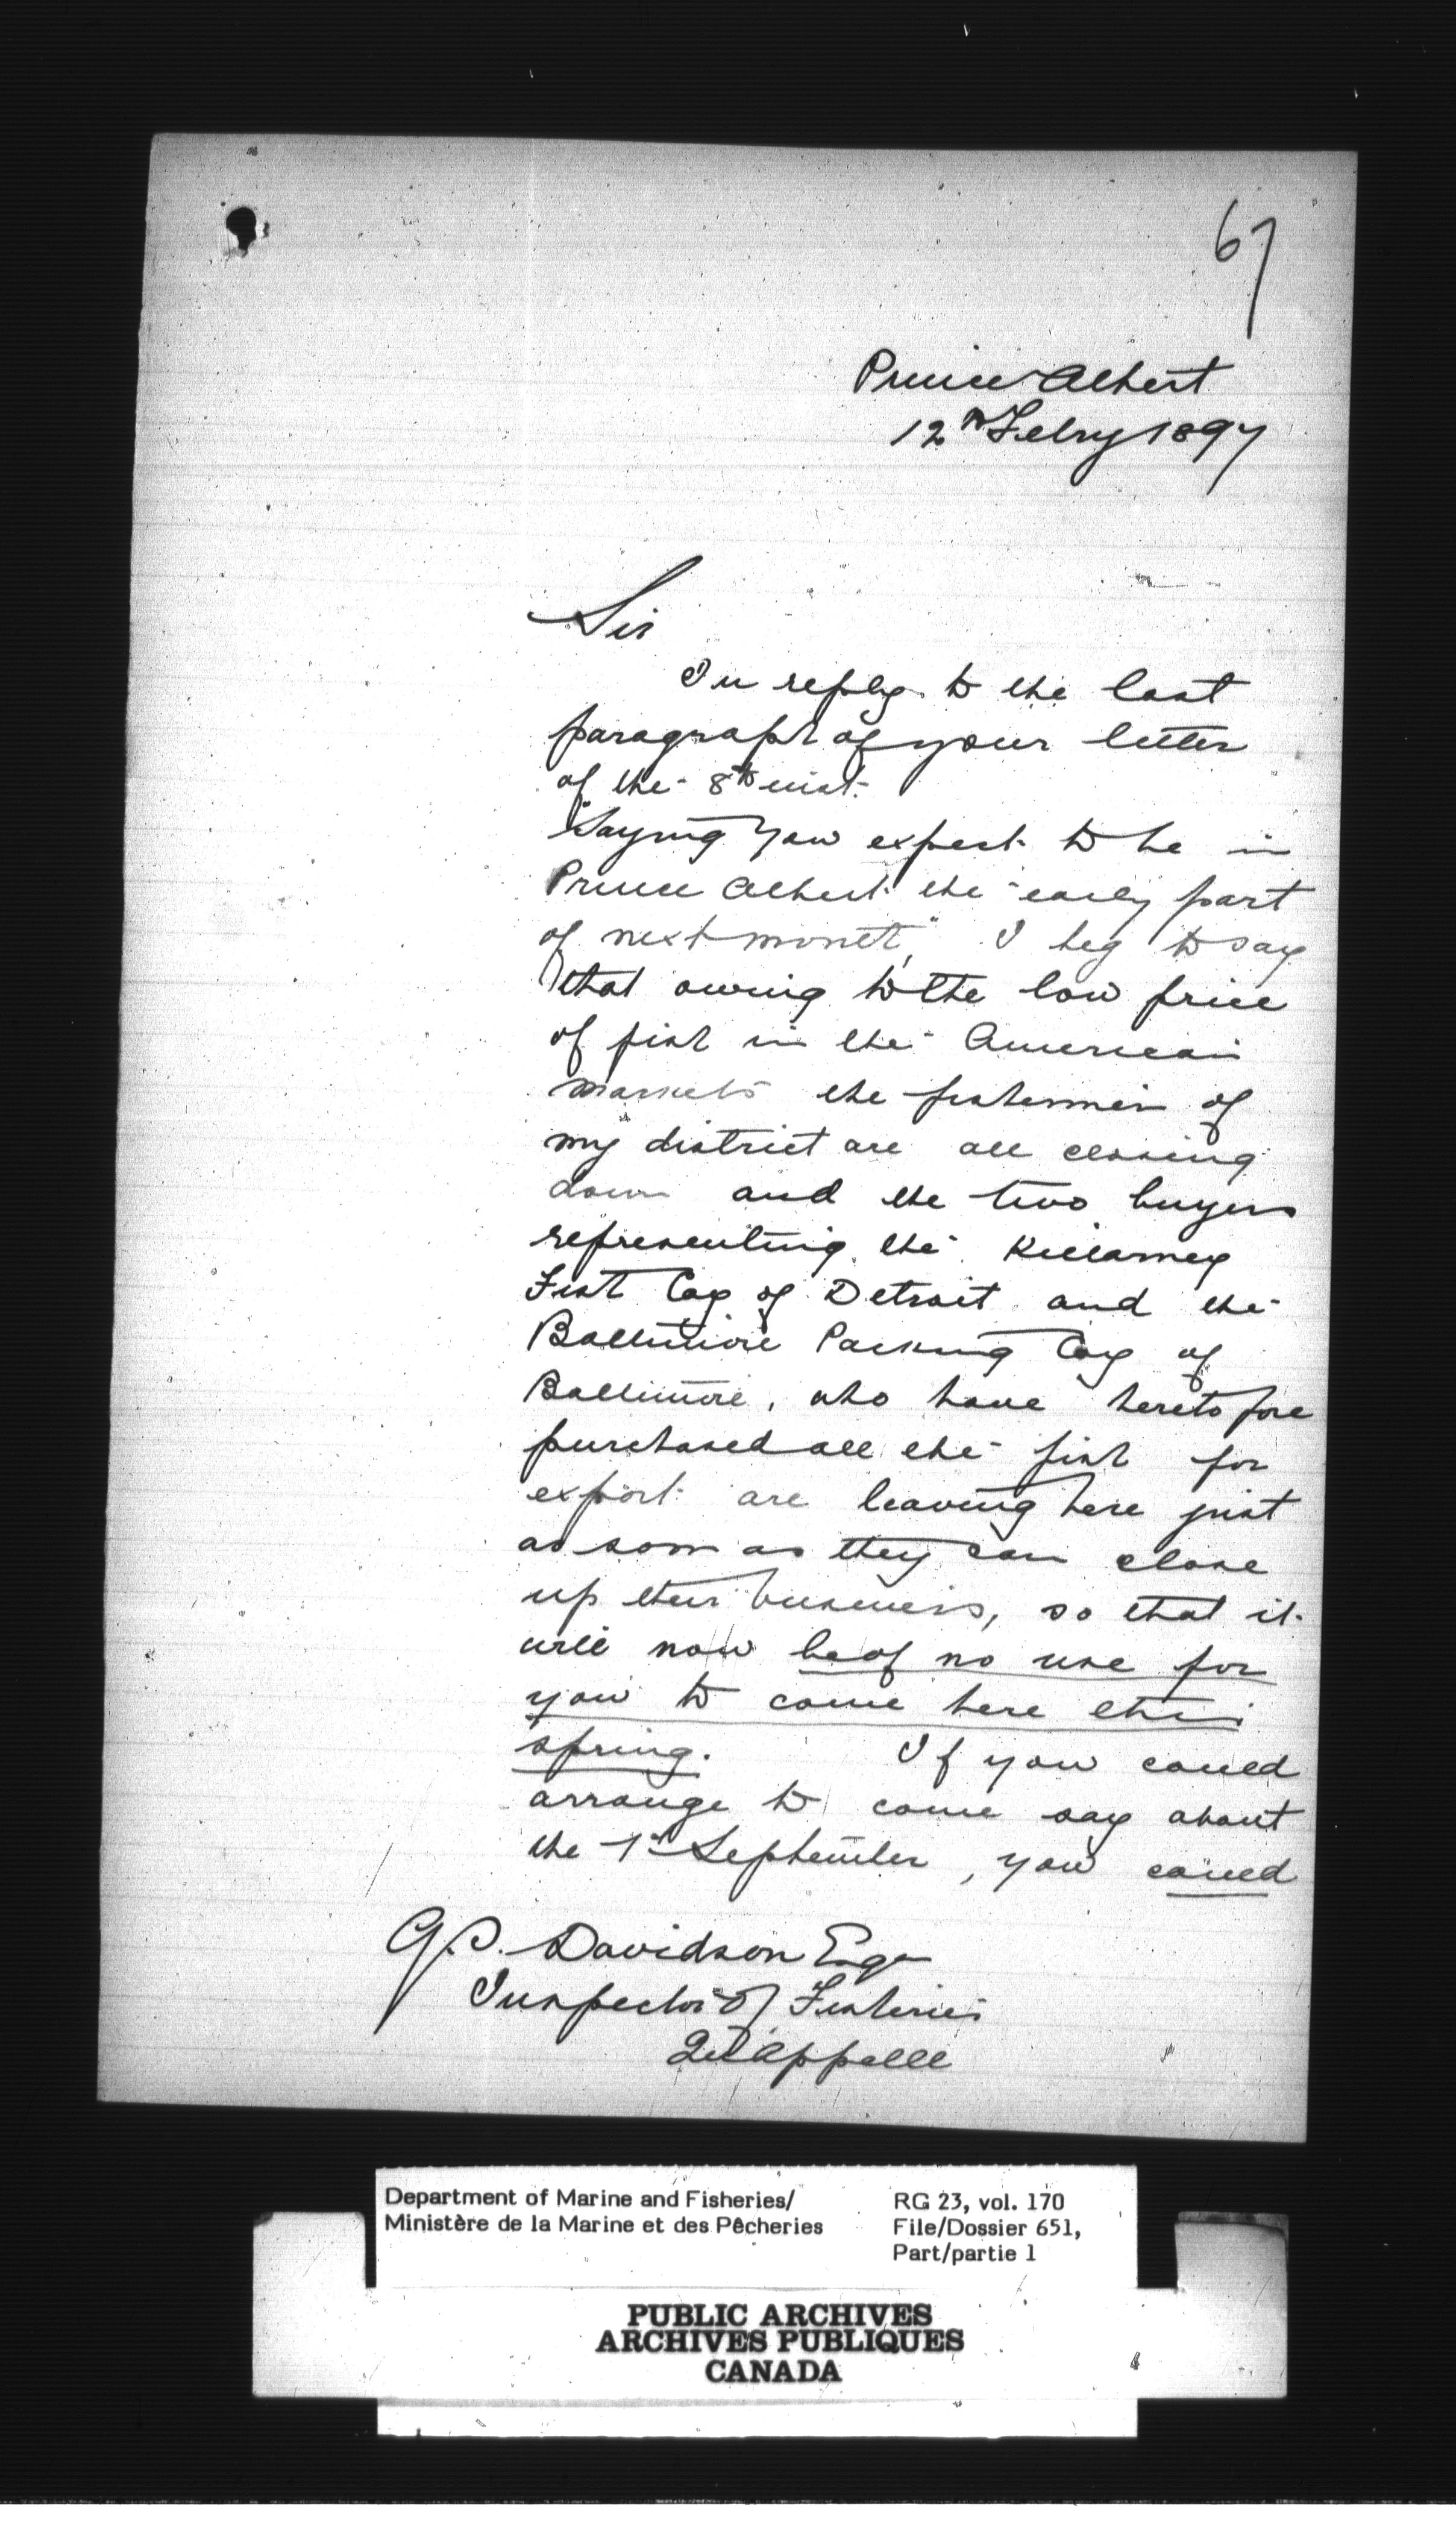 67
Prince Albert
12th Febry 1897
Sir
In reply to the last
paragraph of your letter
of the 8th inst.
"Saying you expect to be in
Prince Albert the early part
of next month", I beg to say
that owing to the low price
of fish in the American
markets the fishermen of
my district are all closing
down and the two buyers
representing the Killarney
Fish Coy of Detroit and the
Baltimore Packing Coy of
Baltimore, who have heretofore
purchased all the fish for
export are leaving here just
as soon as they can close
up their business, so that it
will now be of no use for
you to come here this
spring. If you could
arrange to come say about
the 1st September, you could
Davidson Esqr
Inspector of Fisheries
Qu'Appelle
Department of Marine and Fisheries/ RG 23, vol. 170
Ministère de la Marine et des Pêcheries File/Dossier 651,
Part/partie 1
PUBLIC ARCHIVES
ARCHIVES PUBLIQUES
CANADA